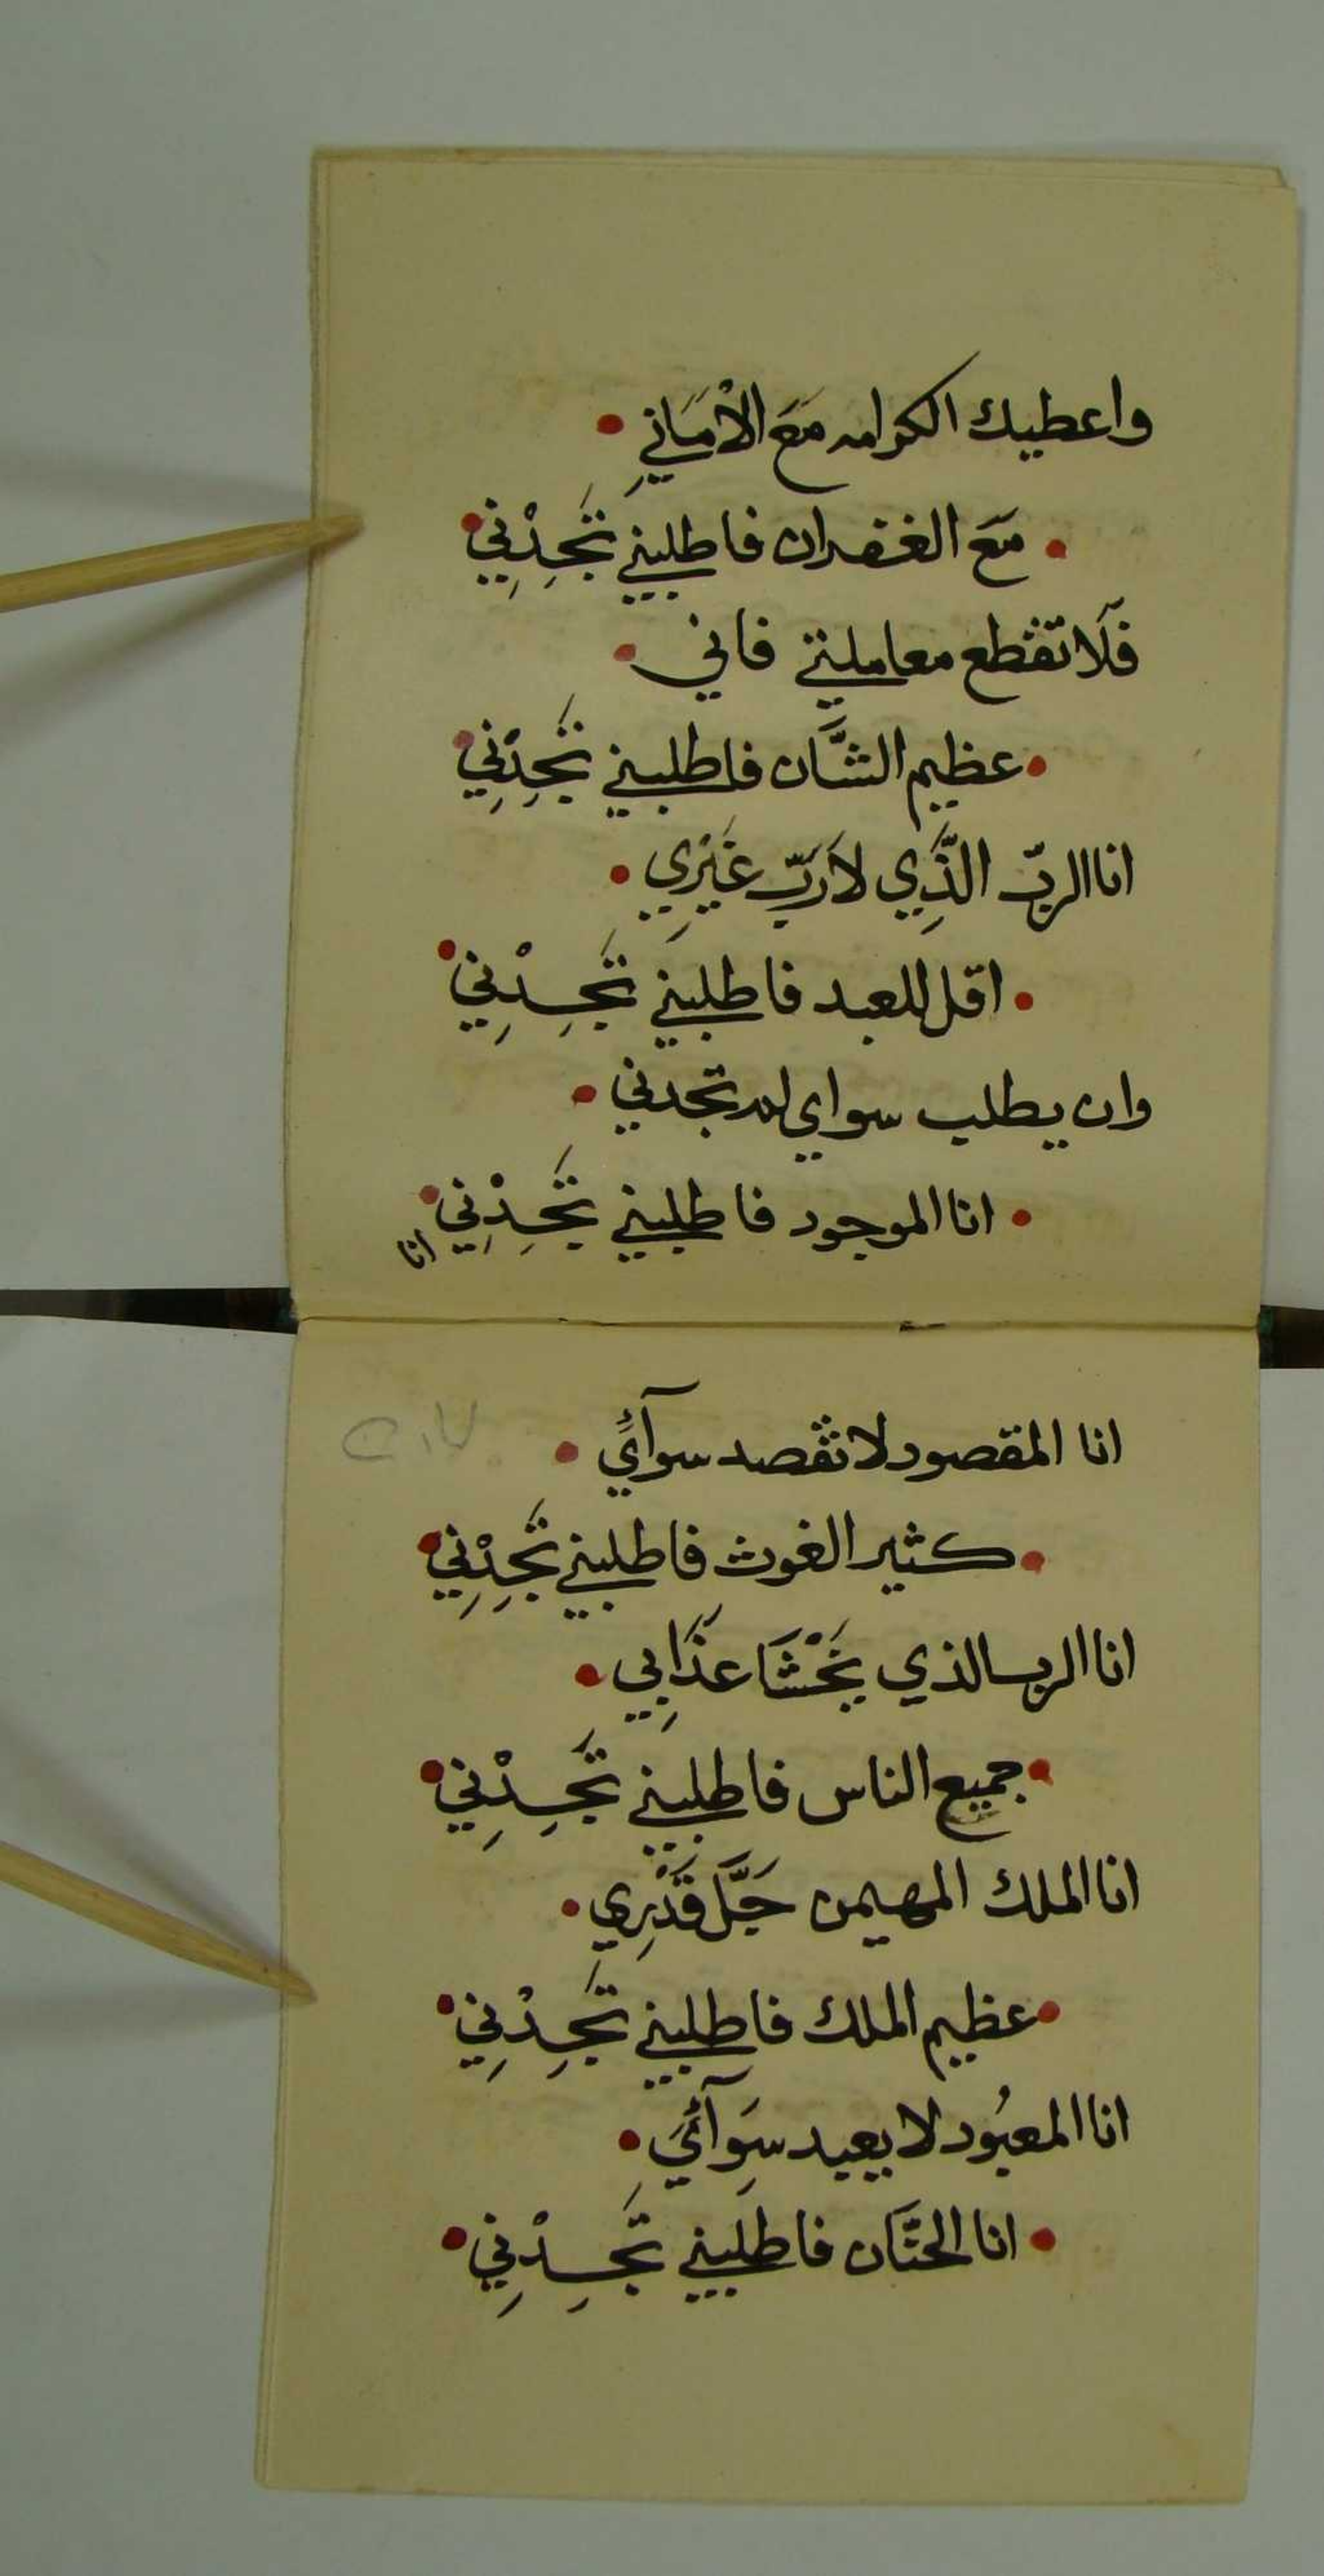 واعطيك الكرامه مَعَ الْاَمَانيِ
مَعَ الغفران فاطلبني تَجِدْنِي
فَلَا تقطع معاملتي فاني
عظيم الشَّان فاطلبني تَجِدْنِي
انا الربّ الَّذِي لَا رَبّ غَيْرِي
اقل للعبد فاطلبني تَجِدْنِي
وان يطلب سواي لم تجدني
انا الموجود فاطلبني تَجِدْنِي
انا
انا المقصود لا تقصد سوآئي
كثير الغوث فاطلبني تَجِدْنِي
انا الرب الذي يَخْشَا عَذَابِي
جميع الناس فاطلبني تَجِدْنِي
انا الملك المهيمن جَلَّ قَدْرِي
عظيم الملك فاطلبني تَجِدْنِي
انا المعبُود لا يعبد سِوَآئي
انا الحنَّان فاطلبني تَجِدْنِي